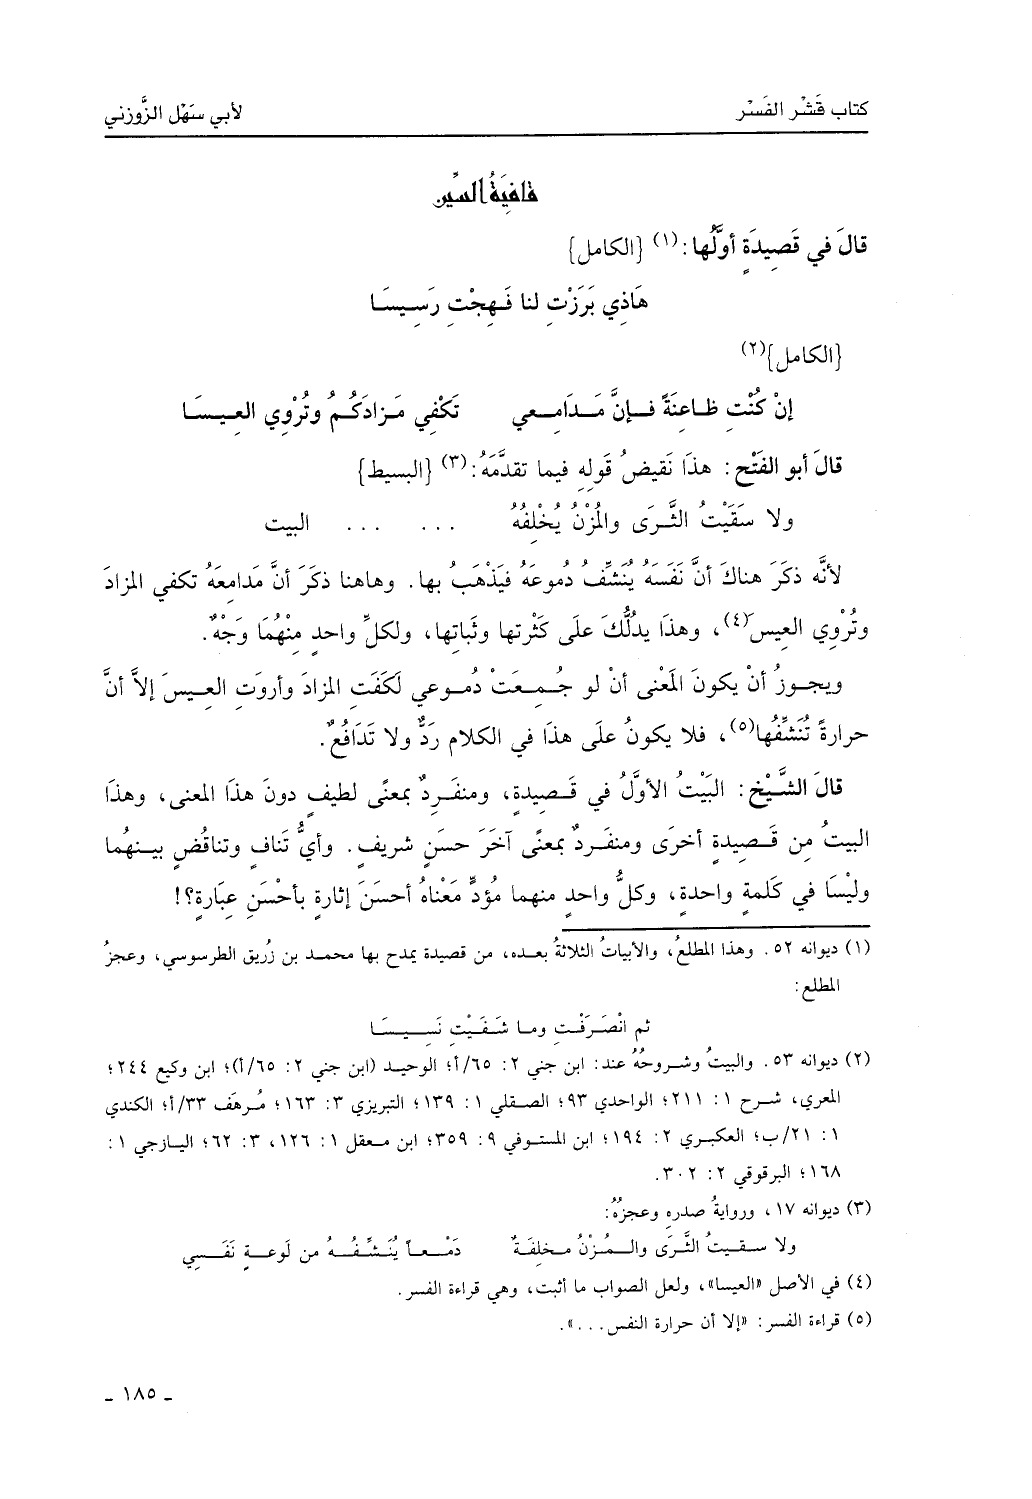 كتاب قَشْر الفَسْر
لأبي سَهْل الزَّوزني
قافِيَةُ السِّين
قالَ في قَصِيدَةٍ أوَّلُها:(١) {الكامل}
هَاذِي بَرَزْتِ لنا فَهِجْتِ رَسِيسَا
{الكامل}(٢)
إنْ كُنْتِ ظاعِنَةً فإنَّ مَدَامِعي تَكْفِي مَزادَكُمُ وتُرْوِي العِيسَا
قالَ أبو الفَتْحِ: هذَا نَقيضُ قَولِهِ فيما تقدَّمَهُ:(٣) {البسيط}
ولا سَقَيْتُ الثَّرَى والمُزْنُ يُخْلِفُهُ ... ... ... البيت
لأنَّه ذكَرَ هناكَ أنَّ نَفَسَهُ يُنَشِّفُ دُموعَهُ فيَذْهَبُ بها. وهاهنا ذكَرَ أنَّ مَدامِعَهُ تكفي المزادَ
وتُرْوِي العيسَ(٤)، وهذَا يدلُّكَ علَى كَثْرتِها وثَباتِها، ولكلِّ واحدٍ مِنْهُمَا وَجْهٌ.
ويجوزُ أنْ يكونَ المَعْنى أنْ لو جُمِعَتْ دُموعي لَكَفَتِ المزادَ وأروَتِ العيسَ إلاَّ أنَّ
حرارةً تُنَشِّفُها(٥)، فلا يكونُ علَى هذَا في الكلامِ رَدٌّ ولا تَدَافُعٌ.
قالَ الشَّيْخ: البَيْتُ الأوَّلُ في قَصيدةٍ، ومنفَرِدٌ بمعنًى لطيفٍ دونَ هذَا المعنى، وهذَا
البيتُ مِن قَصِيدةٍ أخرَى ومنفَرِدٌ بمعنًى آخرَ حسَنٍ شريفٍ. وأيُّ تَنافٍ وتناقُضٍ بينهُما
وليْسَا في كَلمةٍ واحدةٍ، وكلُّ واحدٍ منهما مُؤدٍّ مَعْناهُ أحسَنَ إثارةٍ بأحْسَنِ عِبَارةٍ؟!
(١) ديوانه ٥٢. وهذا المطلعُ، والأبياتُ الثلاثةُ بعده، من قصيدة يمدح بها محمد بن زُريق الطرسوسي، وعجزُ
المطلع:
ثم انْصَرَفْتِ وما شَفَيْتِ نَسِيسَا
(٢) ديوانه ٥٣. والبيتُ وشروحُهُ عند: ابن جني ٢: ٦٥/أ؛ الوحيد (ابن جني ٢: ٦٥/أ)؛ ابن وكيع ٢٤٤؛
المعري، شرح ١: ٢١١؛ الواحدي ٩٣؛ الصقلي ١: ١٣٩؛ التبريزي ٣: ١٦٣؛ مُرهَف ٣٣/أ؛ الكندي
١: ٢١/ب؛ العكبري ٢: ١٩٤؛ ابن المستوفي ٩: ٣٥٩؛ ابن معقل ١: ١٢٦، ٣: ٦٢؛ اليازجي ١:
١٦٨؛ البرقوقي ٢: ٣٠٢.
(٣) ديوانه ١٧، وروايةُ صدرِه وعجزُهُ:
ولا سقيتُ الثَّرَى والمُزْنُ مخلفَةٌ دَمْعاً يُنَشِّفُهُ من لَوعةٍ نَفَسِي
(٤) في الأصل «العيسا»، ولعل الصواب ما أثبت، وهي قراءة الفسر.
(٥) قراءة الفسر: «إلا أن حرارة النفس...».
ـ ١٨٥ ـ